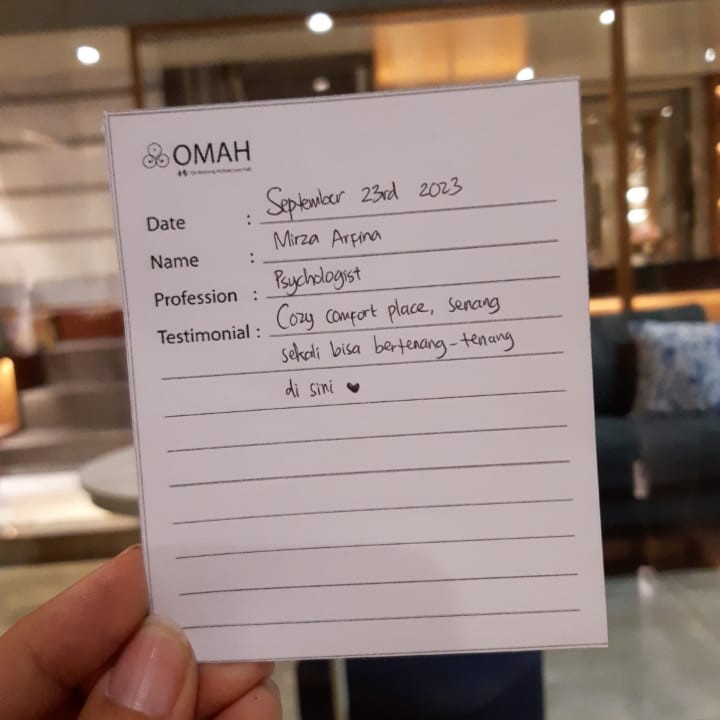 OMAH
Date : September 23rd 2023
Name : Mirza Arfina
Profession : Psychologist
Testimonial : Cozy comfort place, senang
sekali bisa bertenang-tenang
di sini ♥